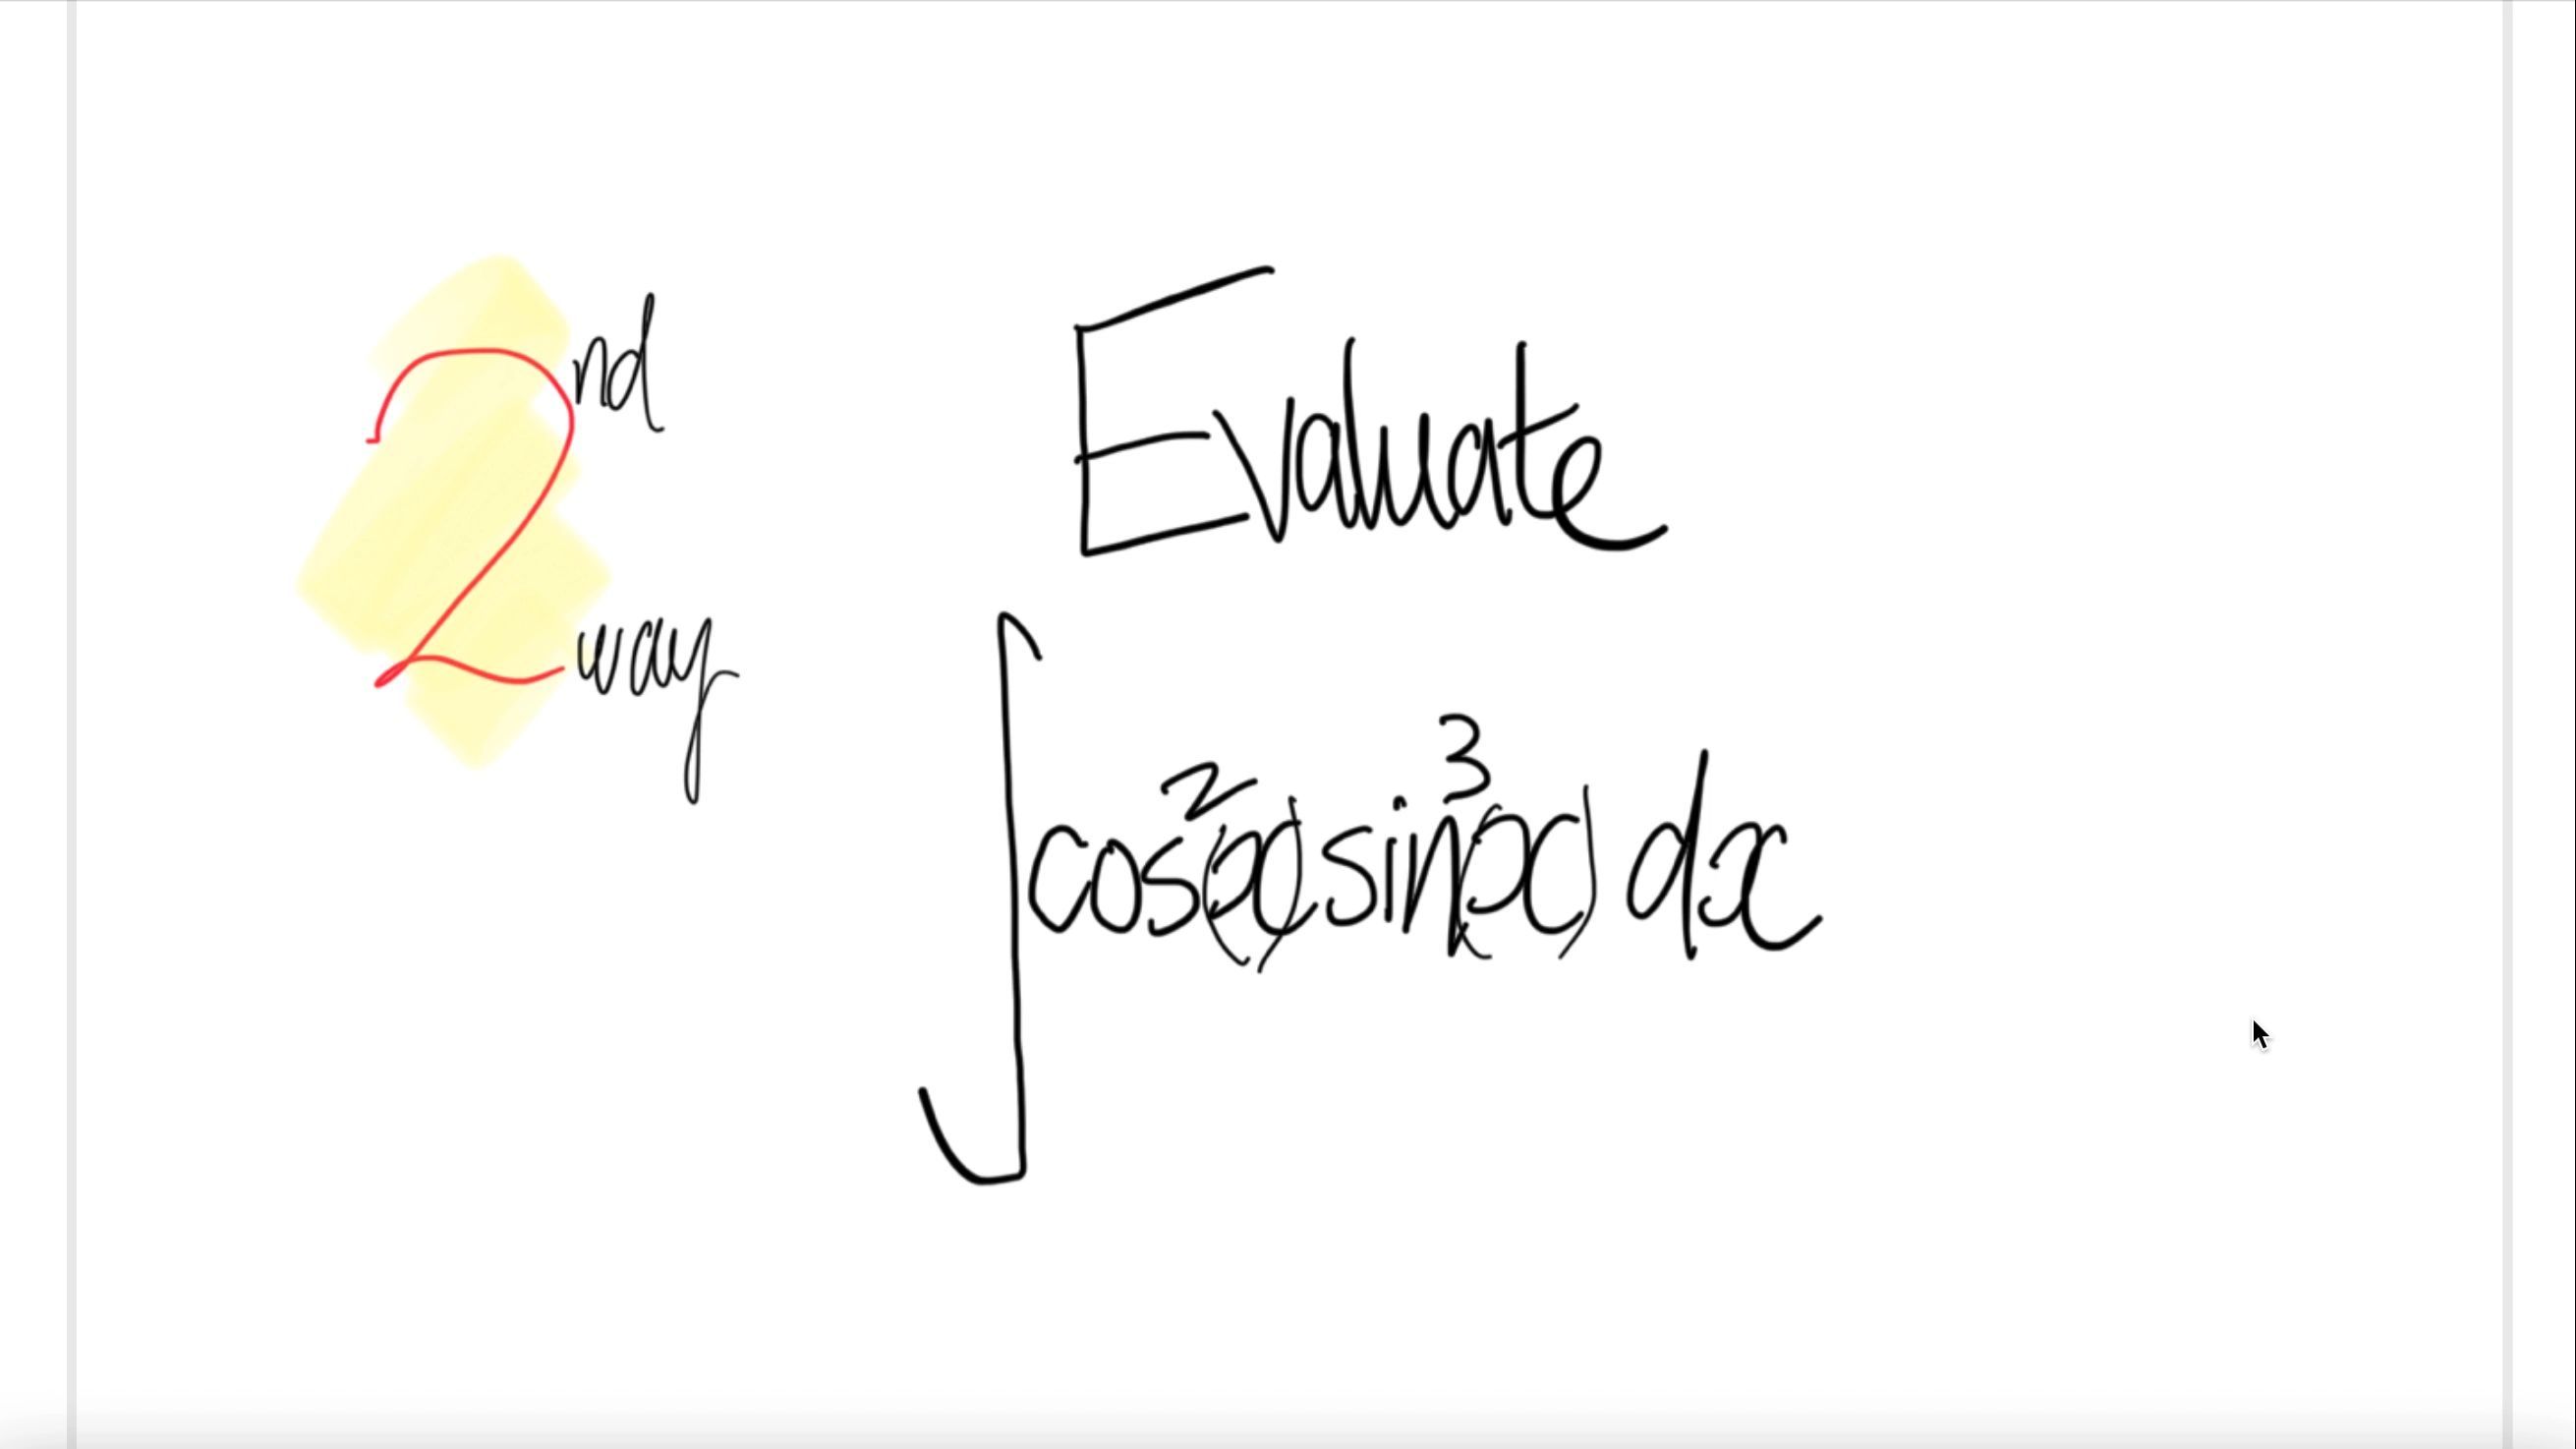 2nd
way
Evaluate
∫cos²(x)sin³(x) dx